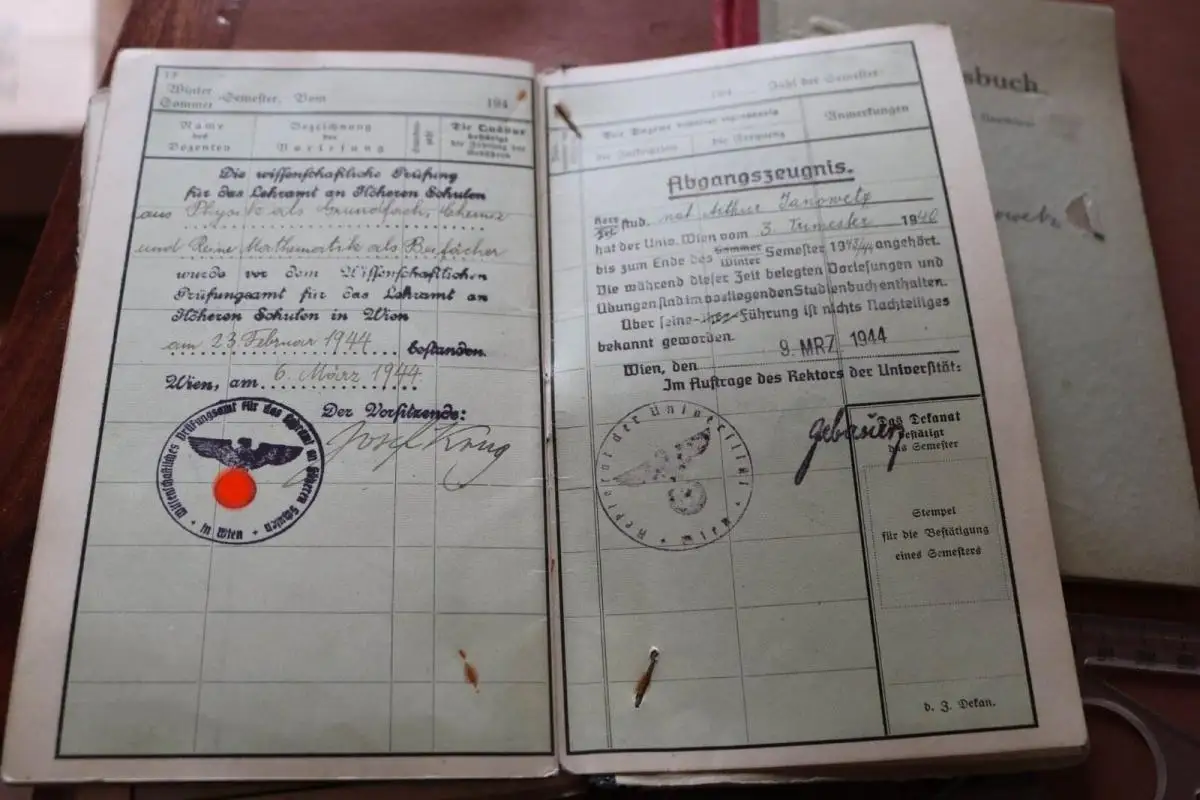 Winter
Sommer -Semester, Vom 194
Name
des
Dozenten
Bezeichnung
der
Vorlesung
Die Quästur
bestätigt
die Zahlung der
Gebühren
Die wissenschaftliche Prüfung
für das Lehramt an Höheren Schulen
aus Physik als Grundfach, Chemie
und Reine Mathematik als Beifächer
wurde vor dem Wissenschaftlichen
Prüfungsamt für das Lehramt an
Höheren Schulen in Wien
am 23. Februar 1944 bestanden.
Wien, am 6. März 1944
Der Vorsitzende:
Josef Krug
Wissenschaftliches Prüfungsamt für das Lehramt an Höheren Schulen
in Wien
Zahl der Semester
Anmerkungen
Abgangszeugnis.
stud. nat Arthur Janowetz
hat der Univ. Wien vom 3. Trimester 1940
bis zum Ende des Sommer Winter Semester 1943/44 angehört.
Die während dieser Zeit belegten Vorlesungen und
Übungen sind im vorliegenden Studienbuch enthalten.
Über seine-ihre Führung ist nichts Nachteiliges
bekannt geworden.
Wien, den 9. MRZ. 1944
Im Auftrage des Rektors der Universität:
Rektorat der Universität Wien
Gebauer
Das Dekanat
bestätigt
das Semester
Stempel
für die Bestätigung
eines Semesters
d. Z. Dekan.
sbuch
owetz